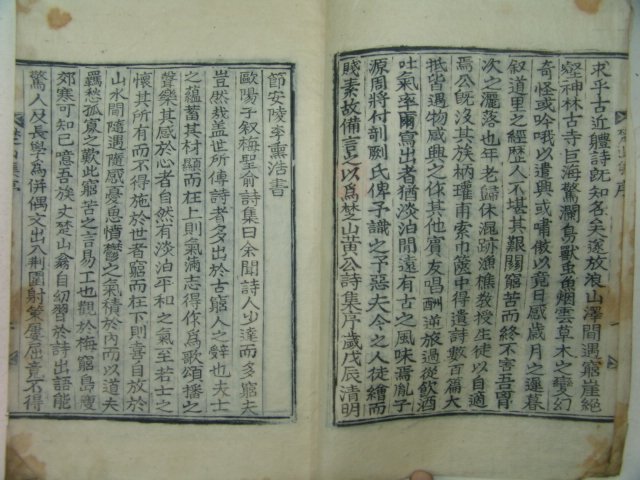 求乎古近體詩旣知名矣遂放浪山澤間遇窮崖絕
壑神林古寺巨海驚瀾鳥獸虫魚烟雲草木之變幻
奇怪或吟哦以遣興或嘯傲以竟日感歲月之遲暮
叙道里之經歷人不堪其艱關窮苦而終不害吾胷
次之灑落也年老歸休混跡漁樵敎授生徒以自適
焉公旣沒其族枘瓘甫索巾篋中得遺詩數百篇大
抵皆遇物感興之作其他賓友唱酬逆旅過從飮酒
吐氣率爾寫出者猶淡泊閒遠有古之風味焉胤子
源周將付剞劂氏俾子識之予惡夫今之人徒繪而
賤素故備言之以爲楚山黃公詩集序歲戊辰淸明
節安陵李熏浩書
歐陽子叙梅聖俞詩集曰余聞詩人少達而多窮夫
豈然哉盖世所傳詩者多出於古窮人之辭也夫士
之蘊蓄其材顯而在上則氣滿志得作爲歌頌播之
聲樂其感於心者自然有淡泊平和之氣至若士之
懷其所有而不得施於世者窮而在下則喜自放於
山水間隨遇隨感憂思憤鬱之氣積於內而以道夫
羈愁孤寡之歎此窮苦之言易工也觀於梅窮島瘦
郊寒可知已噫吾族丈楚山翁自幼習於詩出語能
驚人及長學爲倂偶文出入制圍射策屢屈竟不得